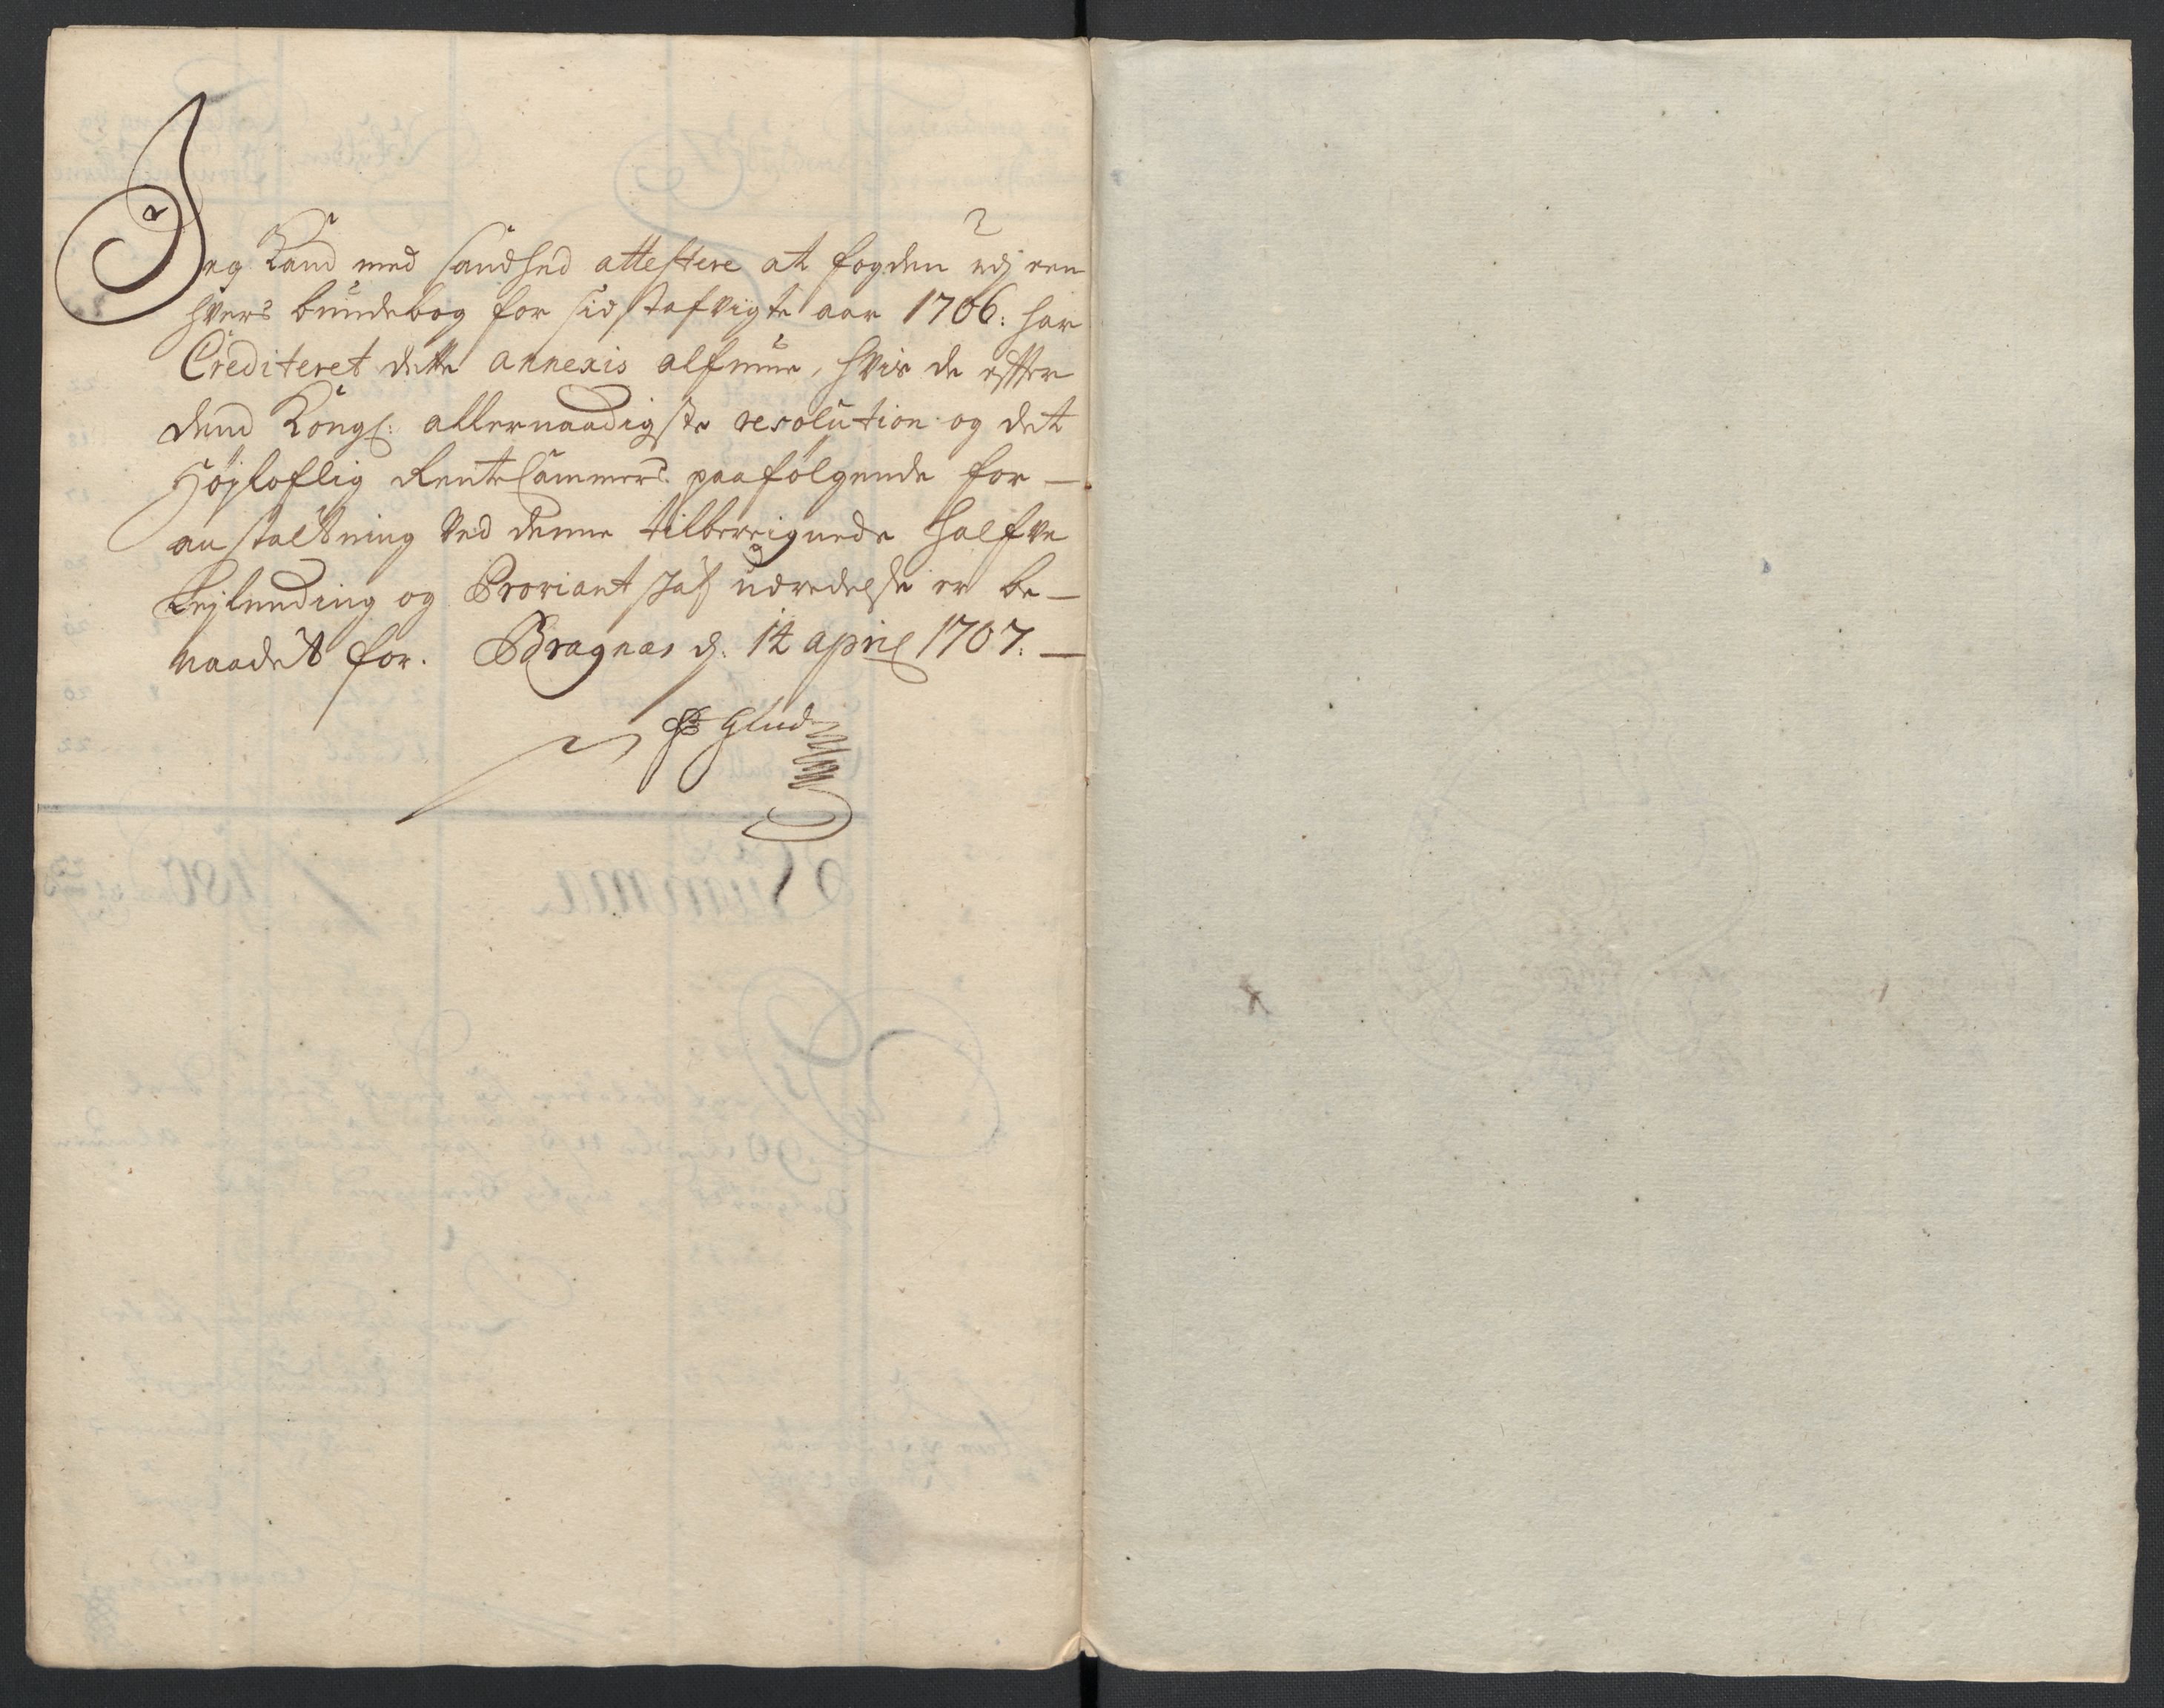 Jeg Kand med sandhed attestere at fogden udj een
hvers bundebog for sidstafvigte aar 1706: har
Crediteret dette annexis alfmue, hvis de efter
dend Kongl: allernaadigste resolution og det
Højloflig RenteCammers paafølgende for-
anstaltning ved denne tilbereignede halfve
Lejlending og Proviant skat udredelse er be-
naadet for. Bragnæs d: 14 april 1707. -
Glud
Summa